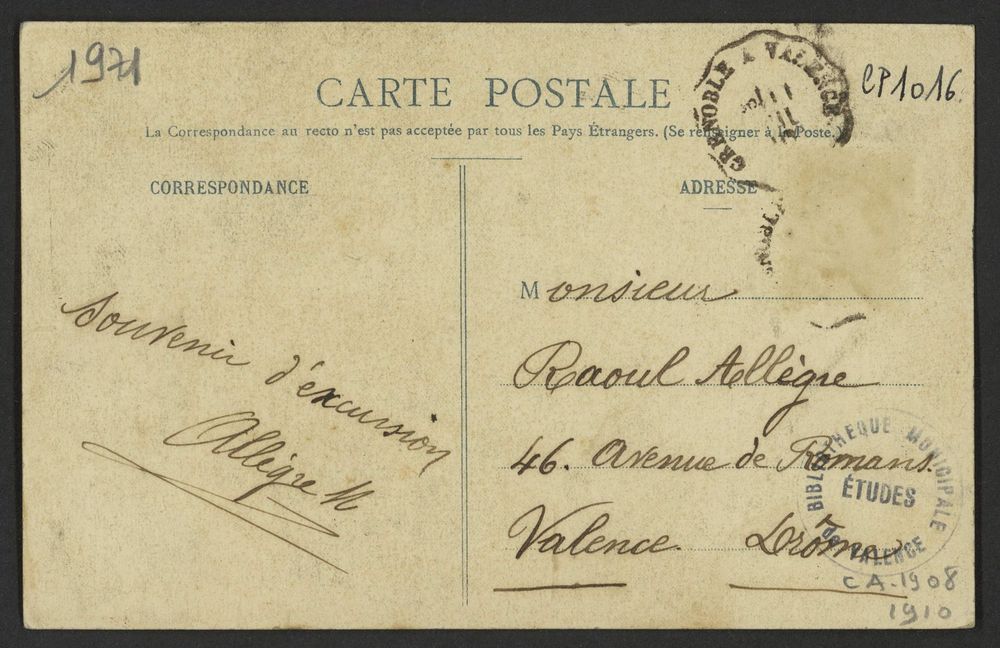 1971
CARTE POSTALE
La Correspondance au recto n'est pas acceptée par tous les Pays Étrangers. (Se renseigner à la Poste.)
GRENOBLE A VALENCE
CP1016
CORRESPONDANCE
ADRESSE
Souvenir d'éxcursion
Allègre M
Monsieur
Raoul Allègre
46. Avenue de Romans.
Valence. Drôme
BIBLIOTHEQUE MUNICIPALE
ÉTUDES
de VALENCE
CA-1908
1910